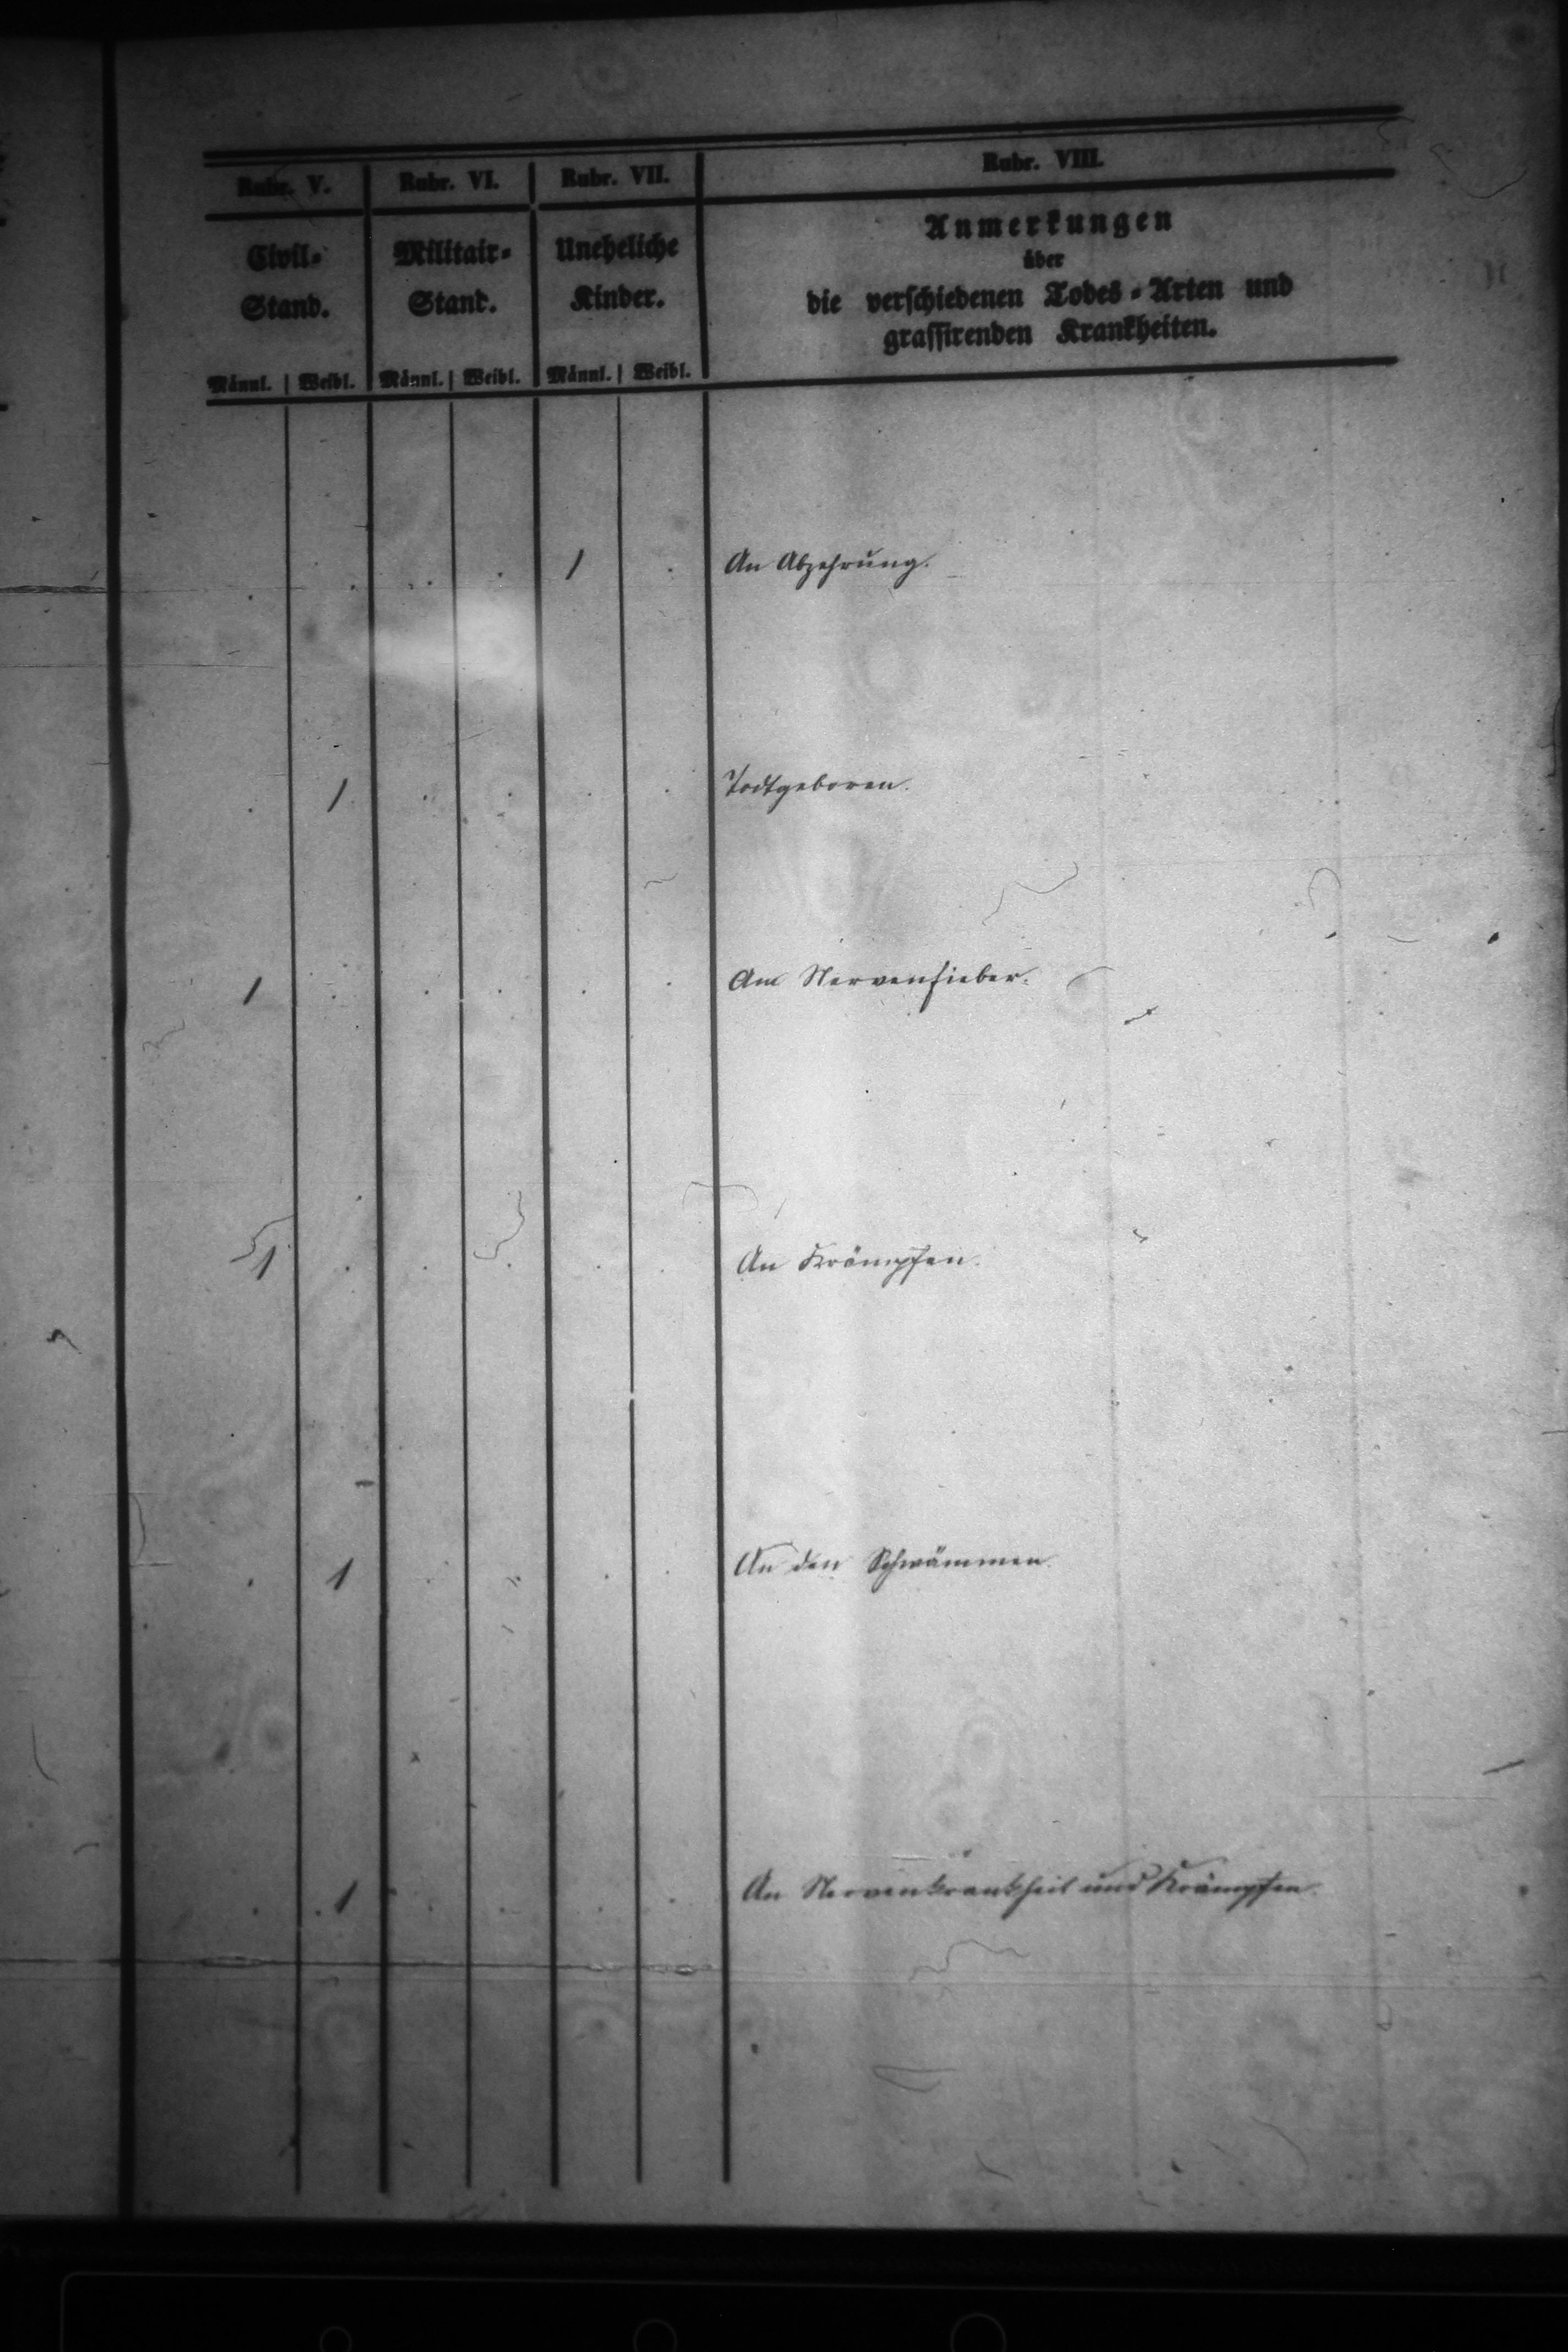 Rubr. V. Rubr. VI. Rubr. VII. Rubr. VIII.
Civil- Militair- Uneheliche Anmerkungen
Stand. Stand. Kinder. über
die verschiedenen Todes-Arten und
grassirenden Krankheiten.
Männl. Weibl. Männl. Weibl. Männl. Weibl.
1 An Abzehrung.
1 Todtgeboren.
1 Am Nervenfieber.
1 An Krämpfen.
1 An den Schwämmen.
1 An Nervenkrankheit und Krämpfen.